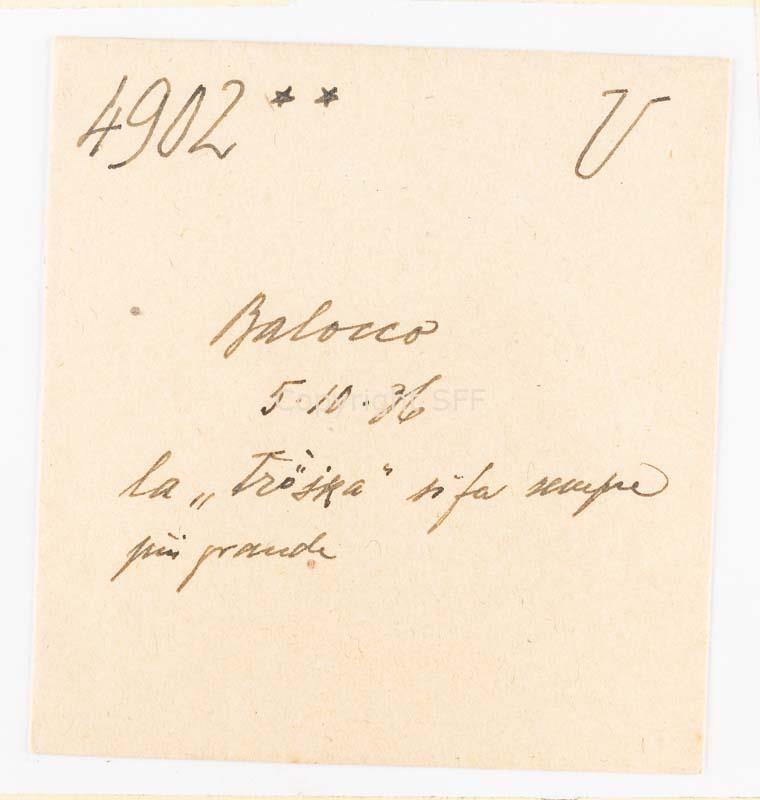 4902 ** V
Balocco
5·10·36
Copyright SFF
la „Tröjka" si fa sempre
più grande